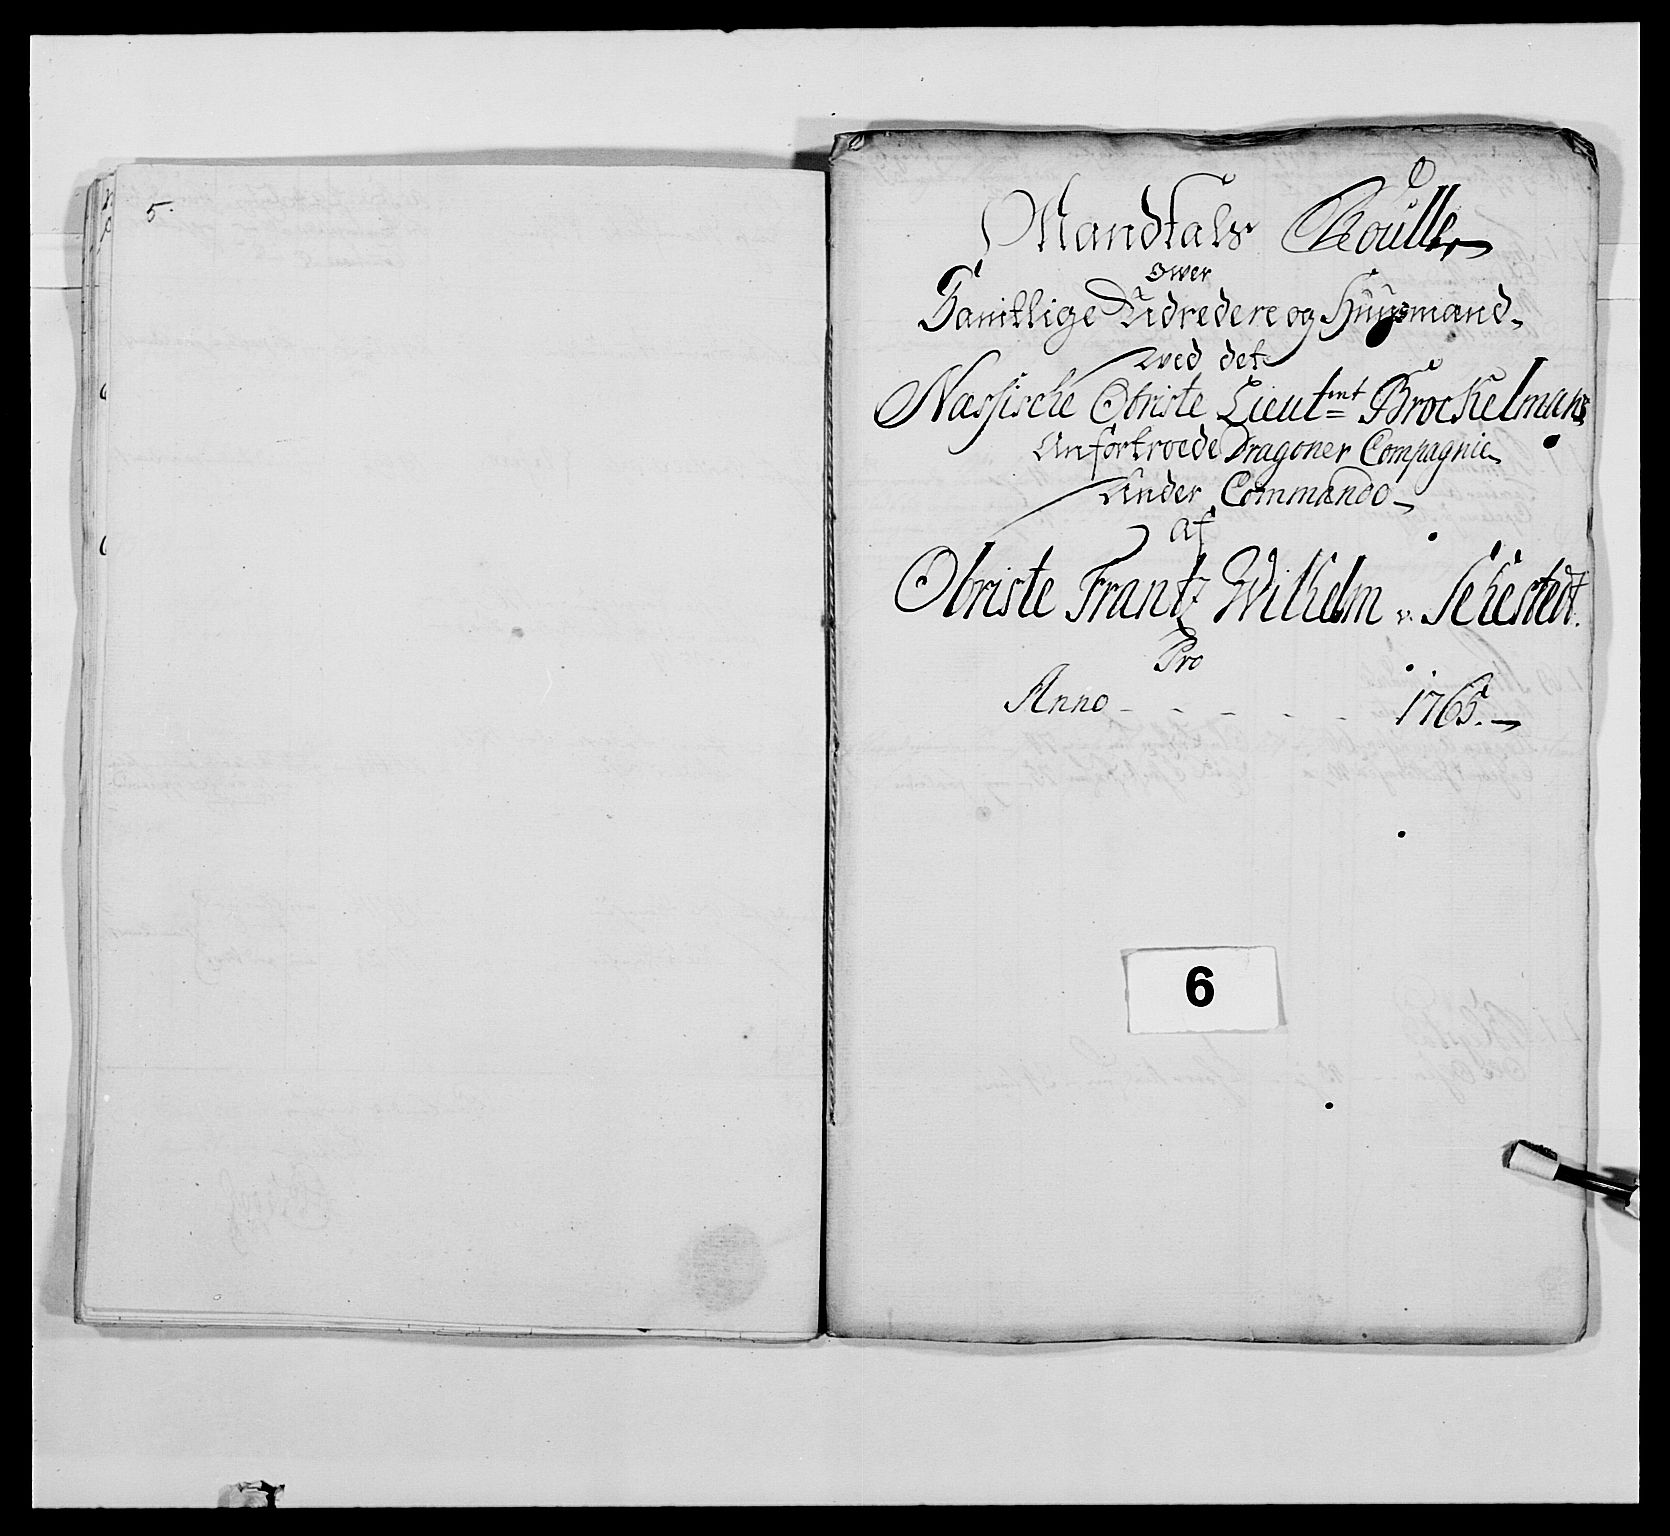 5.
Mandtals Roulle
over
Samtlige Udredere og Huusmænd
ved det
Næssiske Obriste Lieutnt Brockelmans
Anfortroede Dragoner Compagnie
Under Commando
af
Obriste Frantz Wilhelm v. Sehestedt.
Pro
Anno - - - - - 1765.
6